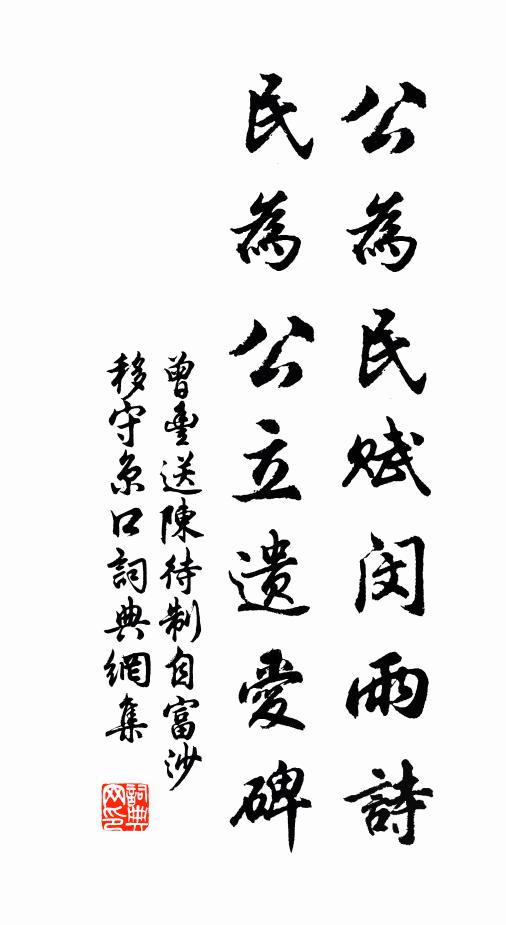 公為民賦閔雨詩
民為公立遺愛碑
曾豐送陳待制自富沙
移守京口詞典網集
詞典
网印